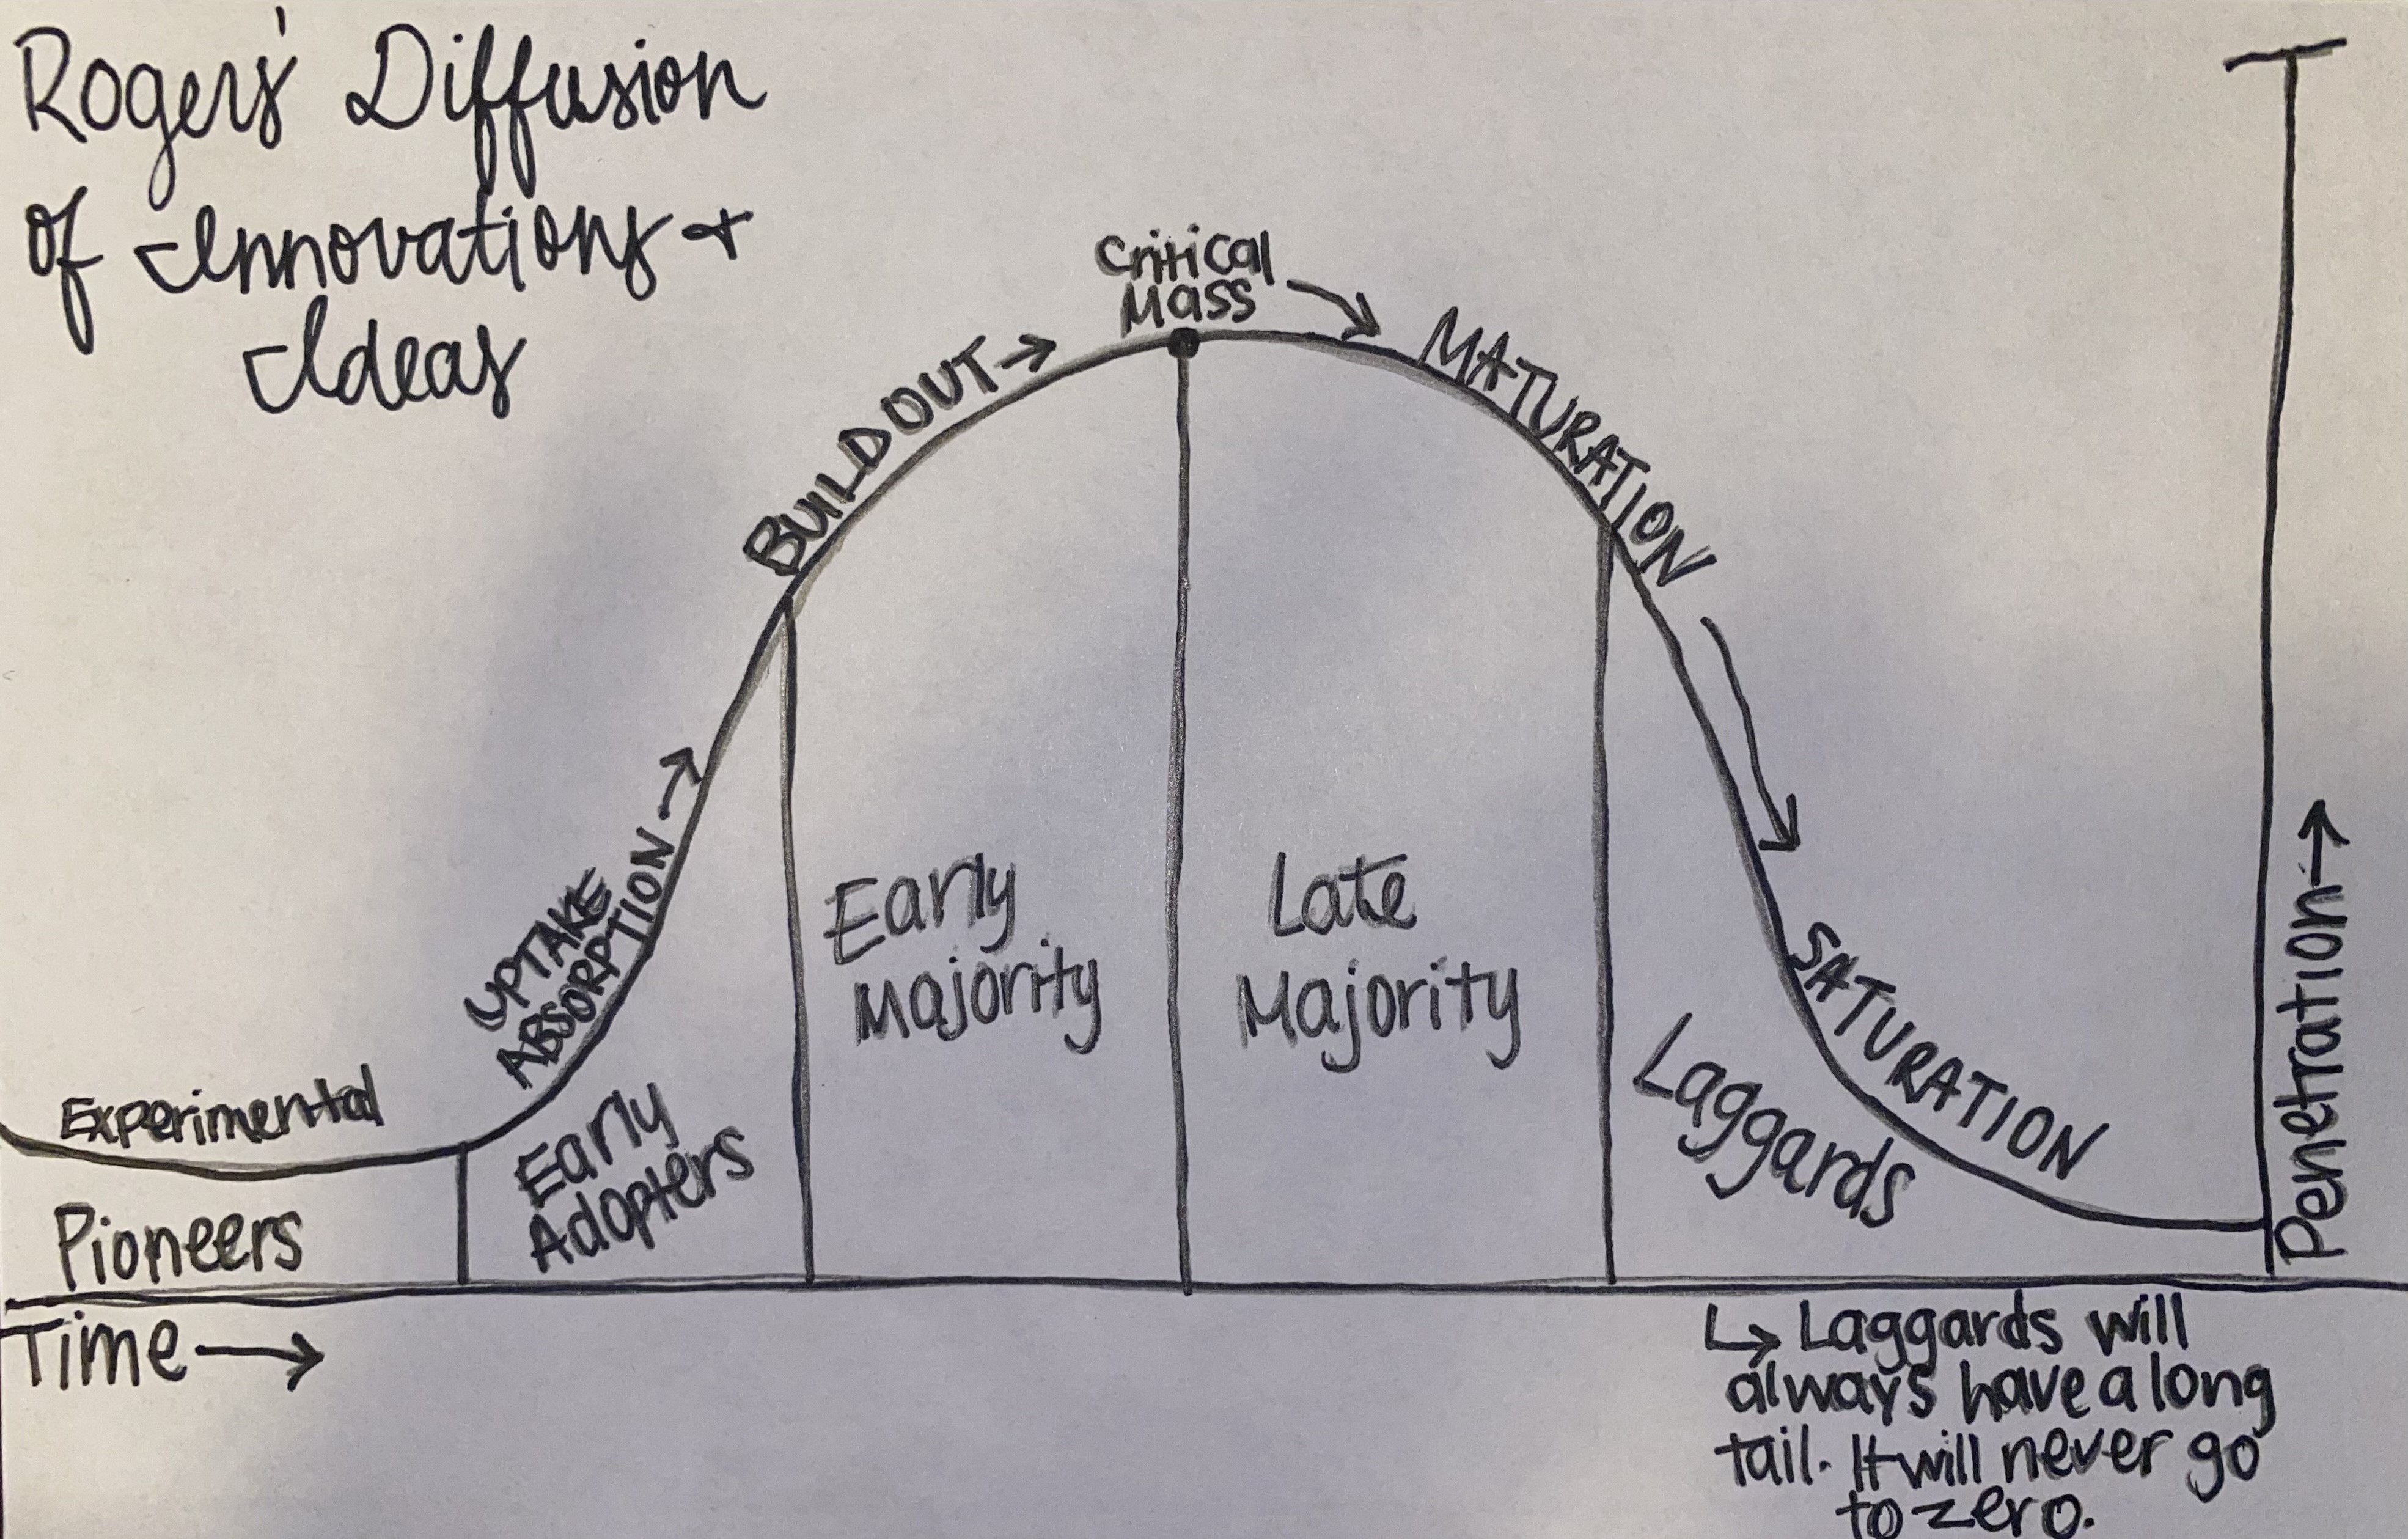 Rogers' Diffusion
of Innovations +
Ideas
Critical
Mass
BUILD OUT →
MATURATION
UPTAKE
ABSORPTION →
SATURATION
Experimental
Pioneers
Early
Adopters
Early
Majority
Late
Majority
Laggards
Penetration →
Time →
↳ Laggards will
always have a long
tail. It will never go
to zero.